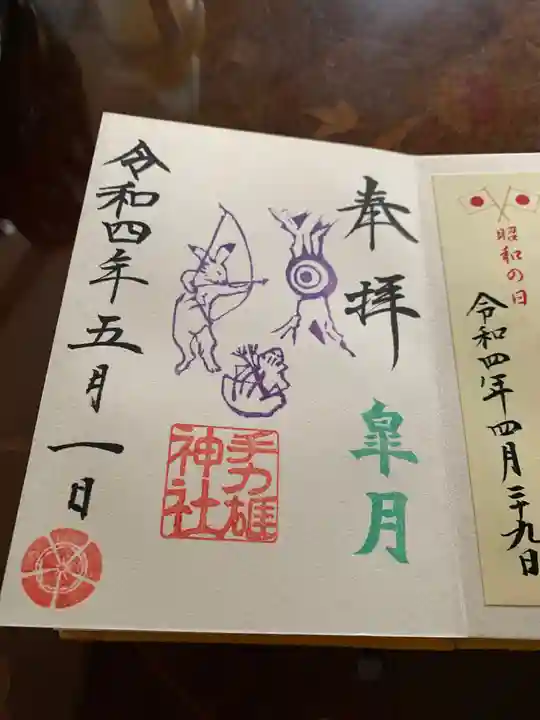 奉拝
皐月
手力雄
神社
令和四年五月一日
昭和の日
令和四年四月二十九日